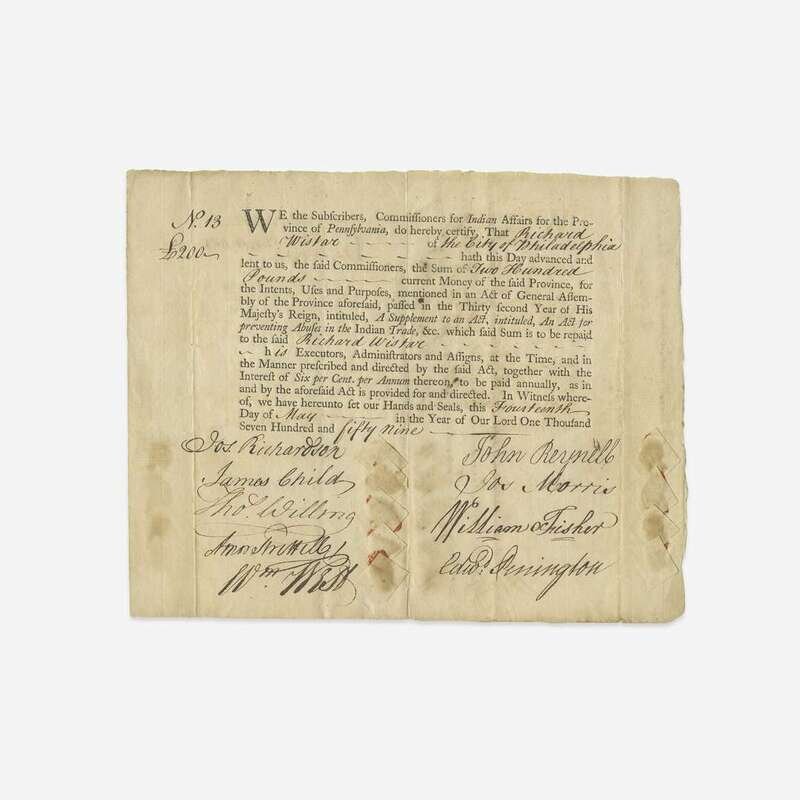 No. 13
£200
WE the Subſcribers, Commiſſioners for Indian Affairs for the Pro-
vince of Pennſylvania, do hereby certify, That Richard
Wistar of the City of Philadelphia
hath this Day advanced and
lent to us, the ſaid Commiſſioners, the Sum of Two Hundred
Pounds current Money of the ſaid Province, for
the Intents, Uſes and Purpoſes, mentioned in an Act of General Aſſem-
bly of the Province aforeſaid, paſſed in the Thirty ſecond Year of His
Majeſty's Reign, intituled, A Supplement to an Act, intituled, An Act for
preventing Abuſes in the Indian Trade, &c. which ſaid Sum is to be repaid
to the ſaid Richard Wistar
his Executors, Adminiſtrators and Aſſigns, at the Time, and in
the Manner preſcribed and directed by the ſaid Act, together with the
Intereſt of Six per Cent. per Annum thereon, to be paid annually, as in
and by the aforeſaid Act is provided for and directed. In Witneſs where-
of, we have hereunto ſet our Hands and Seals, this Fourteenth
Day of May in the Year of Our Lord One Thouſand
Seven Hundred and fifty nine
Jos. Richardson
John Reynell
James Child
Jos Morris
Thos. Willing
William Fisher
Amos Strettell
Edwd. Penington
Wm West